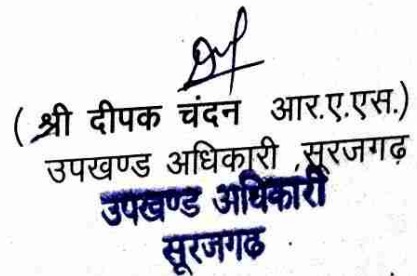 ( श्री दीपक चंदन आर.ए.एस.)
उपखण्ड अधिकारी ,सुरजगढ़
उपखण्ड अधिकारी
सूरजगढ